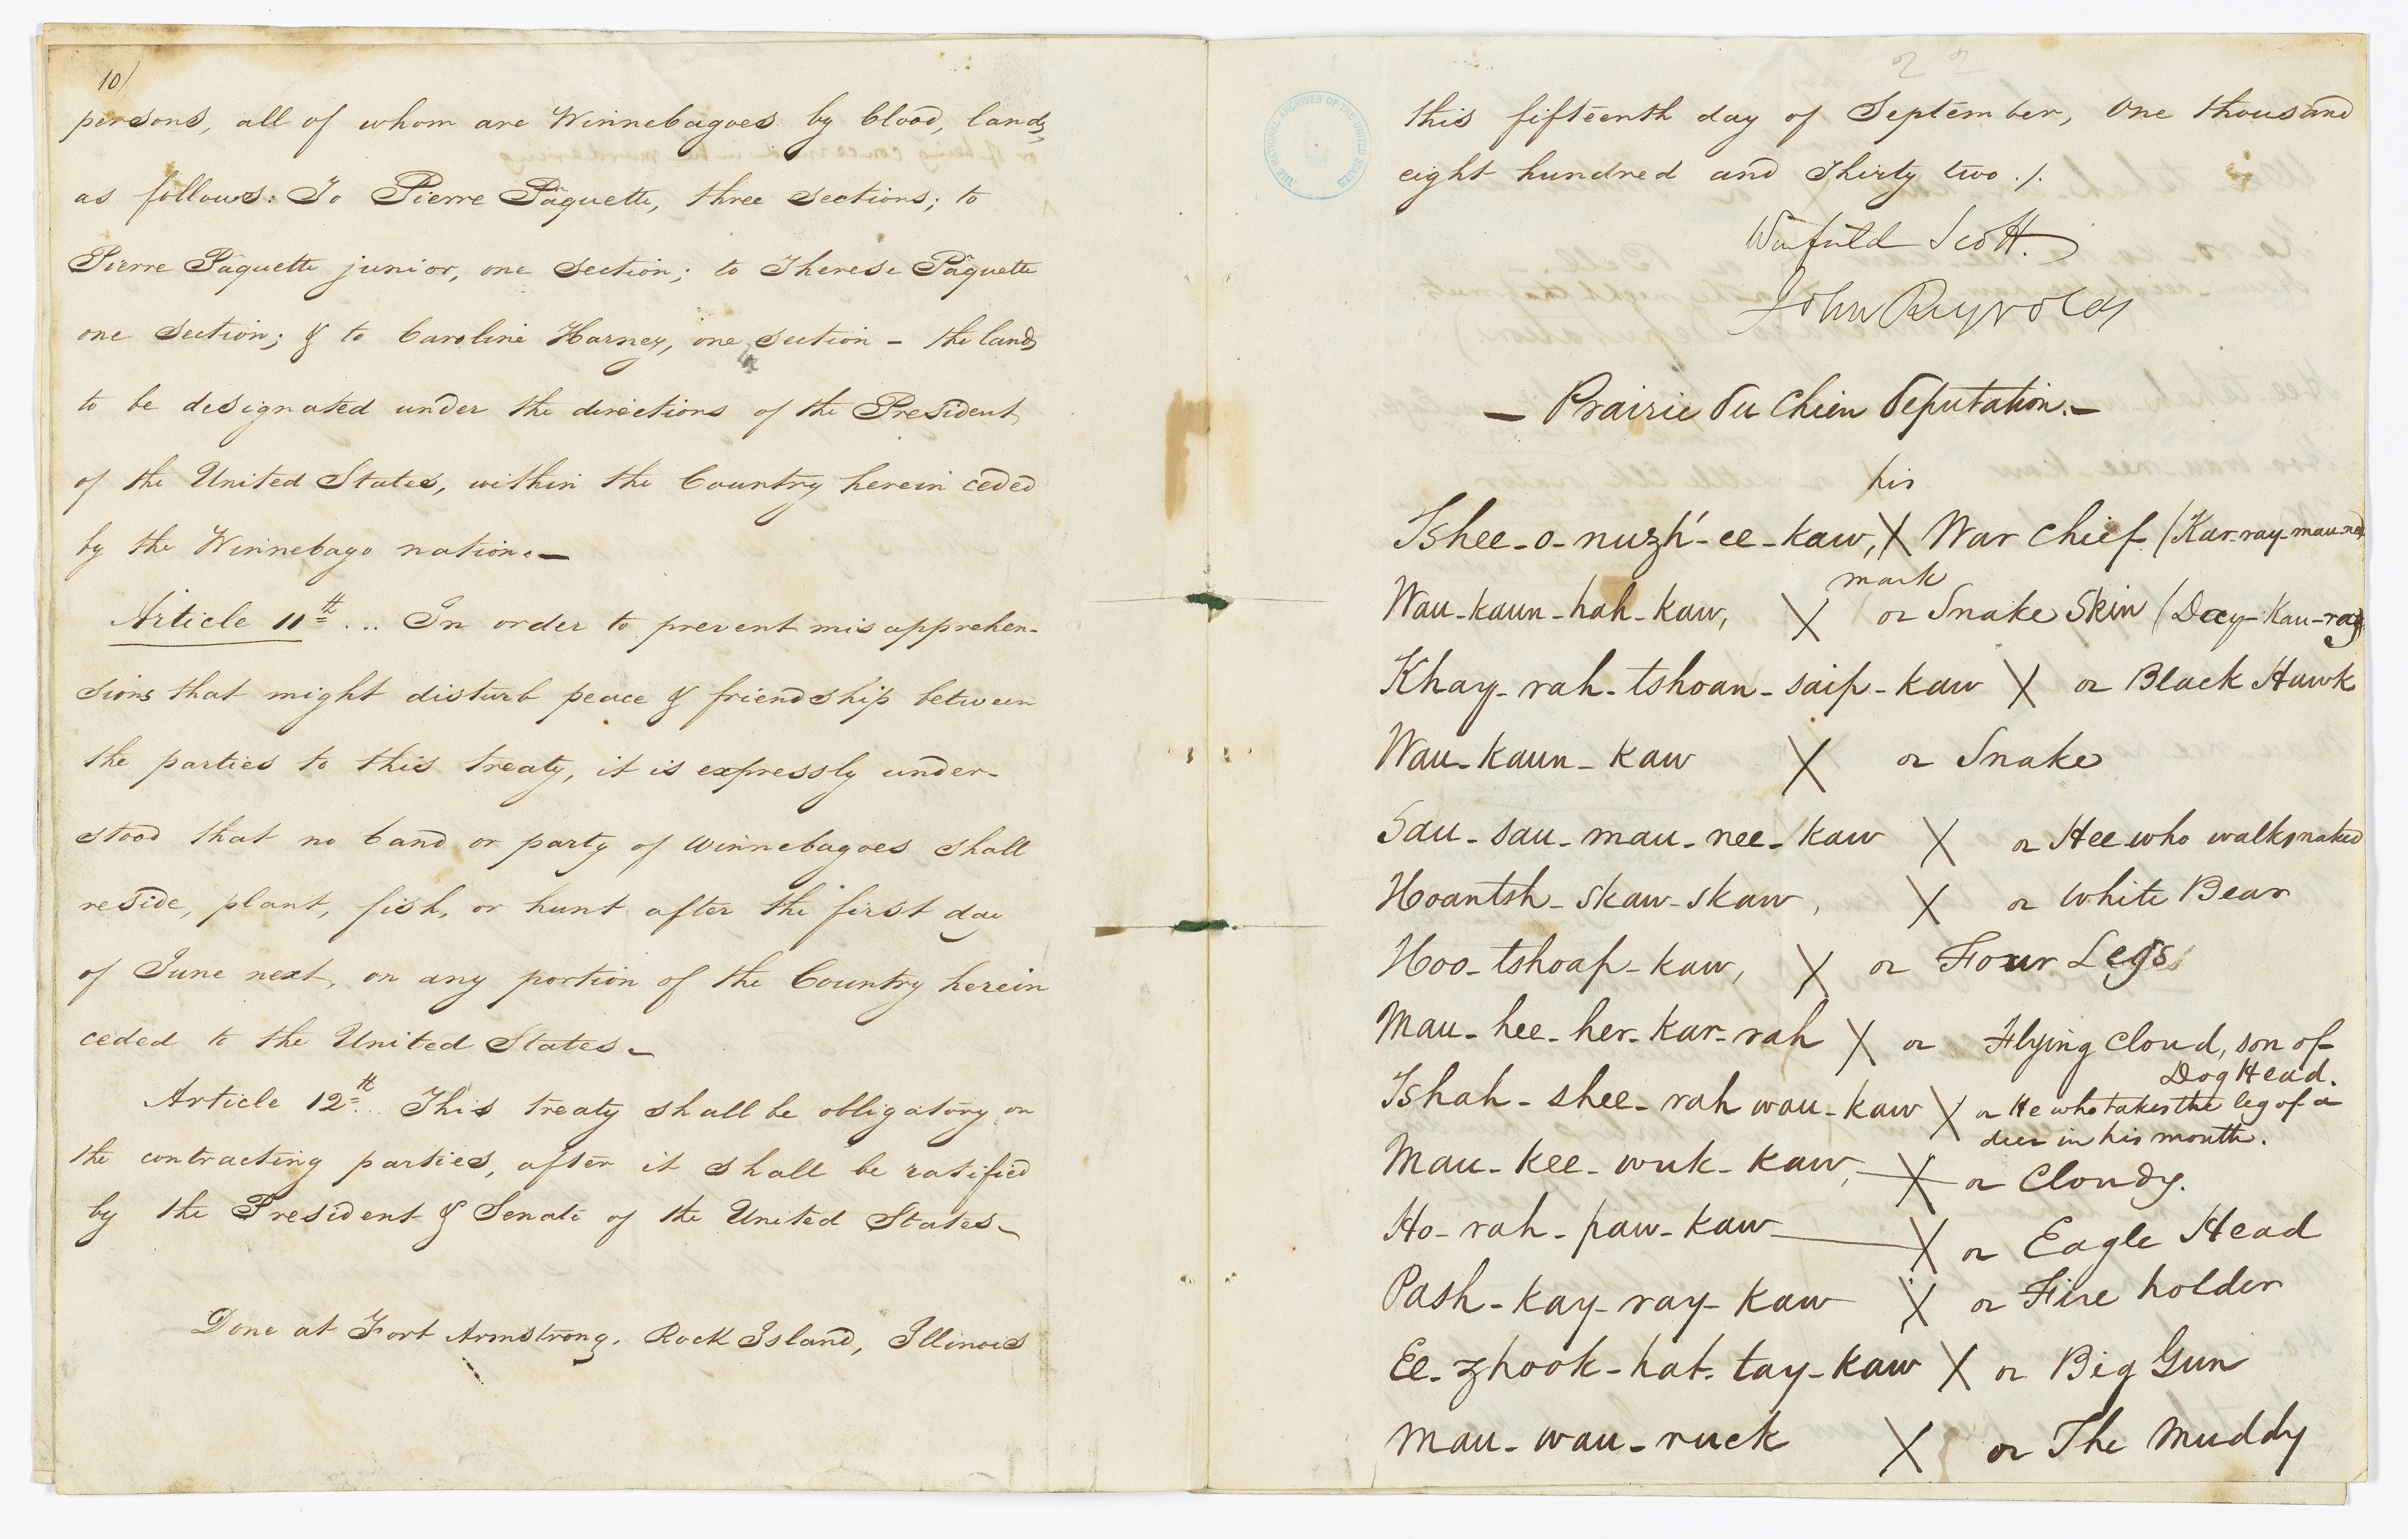 10/
persons, all of whom are Winnebagoes by blood, lands,
as follows: To Pierre Paquette, three sections; to
Pierre Paquette junior, one section; to Therese Paquette
one section; & to Caroline Harney, one section – the lands
to be designated under the directions of the President
of the United States, within the Country herein ceded
by the Winnebago nation.—
Article 11th... In order to prevent misapprehen-
sions that might disturb peace & friendship between
the parties to this treaty, it is expressly under-
stood that no band or party of Winnebagoes shall
reside, plant, fish, or hunt after the first day
of June next, on any portion of the Country herein
ceded to the United States—
Article 12th... This treaty shall be obligatory on
the contracting parties, after it shall be ratified
by the President & Senate of the United States—
Done at Fort Armstrong, Rock Island, Illinois
22
THE NATIONAL ARCHIVES OF THE UNITED STATES
this fifteenth day of September, One thousand
eight hundred and Thirty two./.
Winfield Scott.
John Reynolds
— Prairie du Chien deputation.—
his
Tshee-o-nuzh'-ee-kaw, X War Chief (Kar-ray-mau-nee
mark
Wau-kaun-hah-kaw, X or Snake Skin (Day-Kau-ray
Khay-rah-tshoan-saip-kaw X or Black Hawk
Wau-kaun-kaw X or Snake
Sau-sau-mau-nee-kaw X or Hee who walks naked
Hoantsh-skaw-skaw, X or White Bear
Hoo-tshoap-kaw, X or Four Legs
Mau-hee-her-kar-rah X or Flying Cloud, son of
Dog Head.
Tshah-shee-rah wau-kaw X or He who takes the leg of a
deer in his mouth.
Mau-kee-wuk-kaw, X or Cloudy.
Ho-rah-paw-kaw X or Eagle Head
Pash-kay-ray-kaw X or Fire holder
Ee-zhook-hat-tay-kaw X or Big Gun
Mau-wau-ruck X or The Muddy